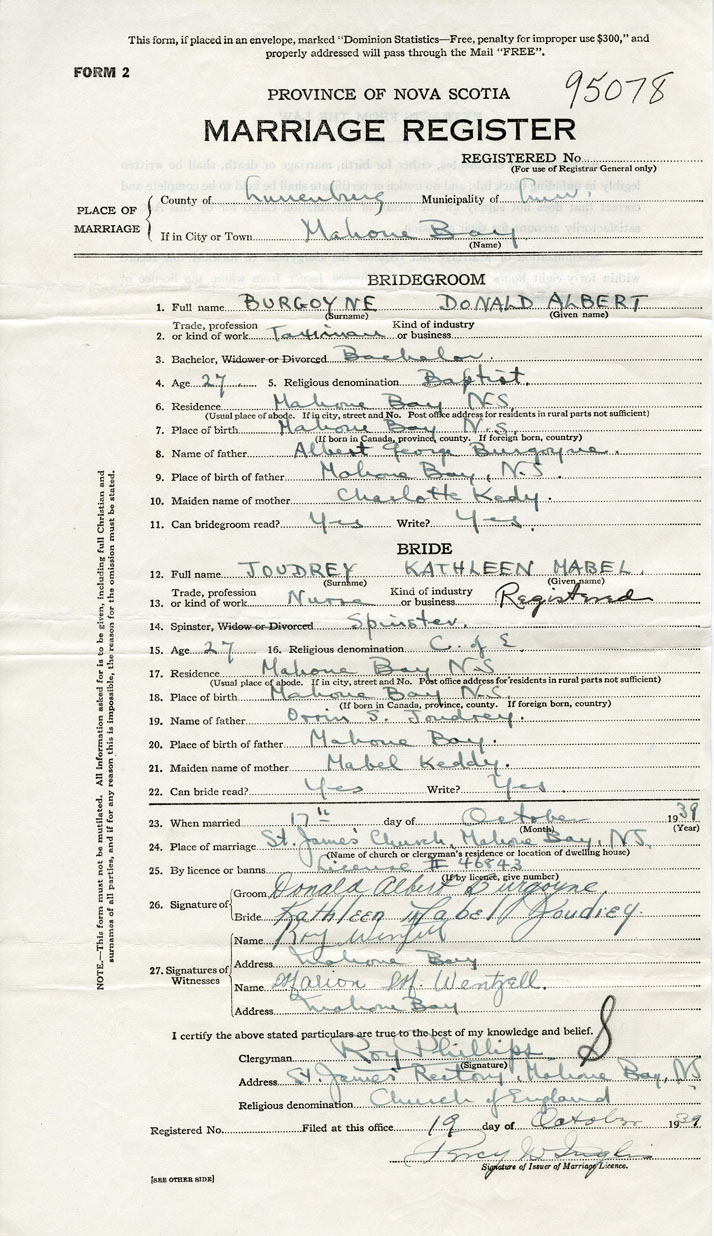 This form, if placed in an envelope, marked "Dominion Statistics—Free, penalty for improper use $300," and
properly addressed will pass through the Mail "FREE".
FORM 2
95078
PROVINCE OF NOVA SCOTIA
MARRIAGE REGISTER
REGISTERED No.
(For use of Registrar General only)
PLACE OF MARRIAGE
County of Lunenburg Municipality of
If in City or Town Mahone Bay
(Name)
BRIDEGROOM
1. Full name BURGOYNE DONALD ALBERT
(Surname) (Given name)
2. Trade, profession or kind of work Taximan Kind of industry or business
3. Bachelor, Widower or Divorced Bachelor.
4. Age 27 5. Religious denomination Baptist.
6. Residence Mahone Bay N.S.
(Usual place of abode. If in city, street and No. Post office address for residents in rural parts not sufficient)
7. Place of birth Mahone Bay N.S.
(If born in Canada, province, county. If foreign born, country)
8. Name of father Albert George Burgoyne.
9. Place of birth of father Mahone Bay, N.S.
10. Maiden name of mother Charlotte Kedy.
11. Can bridegroom read? Yes Write? Yes.
BRIDE
12. Full name JOUDREY KATHLEEN MABEL.
(Surname) (Given name)
13. Trade, profession or kind of work Nurse Kind of industry or business Registered
14. Spinster, Widow or Divorced Spinster.
15. Age 27 16. Religious denomination C. of E.
17. Residence Mahone Bay N.S.
(Usual place of abode. If in city, street and No. Post office address for residents in rural parts not sufficient)
18. Place of birth Mahone Bay N.S.
(If born in Canada, province, county. If foreign born, country)
19. Name of father Orrin S. Joudrey.
20. Place of birth of father Mahone Bay.
21. Maiden name of mother Mabel Keddy.
22. Can bride read? Yes Write? Yes.
23. When married 17th day of October 1939
(Month) (Year)
24. Place of marriage St. James' Church, Mahone Bay, N.S.
(Name of church or clergyman's residence or location of dwelling house)
25. By licence or banns License # 46843
(If by licence, give number)
26. Signature of
Groom Donald Albert Burgoyne.
Bride Kathleen Mabel Joudrey.
27. Signatures of Witnesses
Name Roy
Address Mahone Bay
Name Marion M. Wentzell.
Address Mahone Bay
I certify the above stated particulars are true to the best of my knowledge and belief.
Clergyman Roy Phillips
(Signature)
Address St. James' Rectory, Mahone Bay, NS
Religious denomination Church of England
Registered No. Filed at this office 19 day of October 1939
Percy W Inglis
Signature of Issuer of Marriage Licence.
[SEE OTHER SIDE]
NOTE.—This form must not be mutilated. All information asked for is to be given, including full Christian and
surnames of all parties, and if for any reason this is impossible, the reason for the omission must be stated.